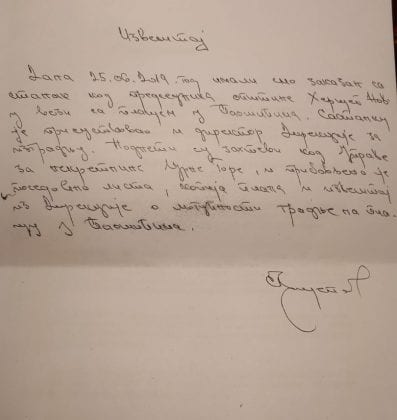 Извештај
Дана 25.06.2019. год имали смо заказан са
станак код председника општине Херцег Нов
у вези са плацем у Баошићима. Састанку
је присуствовао и директор Дирекције за
изградњу. Поднети су захтеви код Управе
за некретнине Црне Горе, и прибављено је
поседовно листа, копија плана и извештај
из Дирекције о могућности градње на пла
цу у Баошићима.